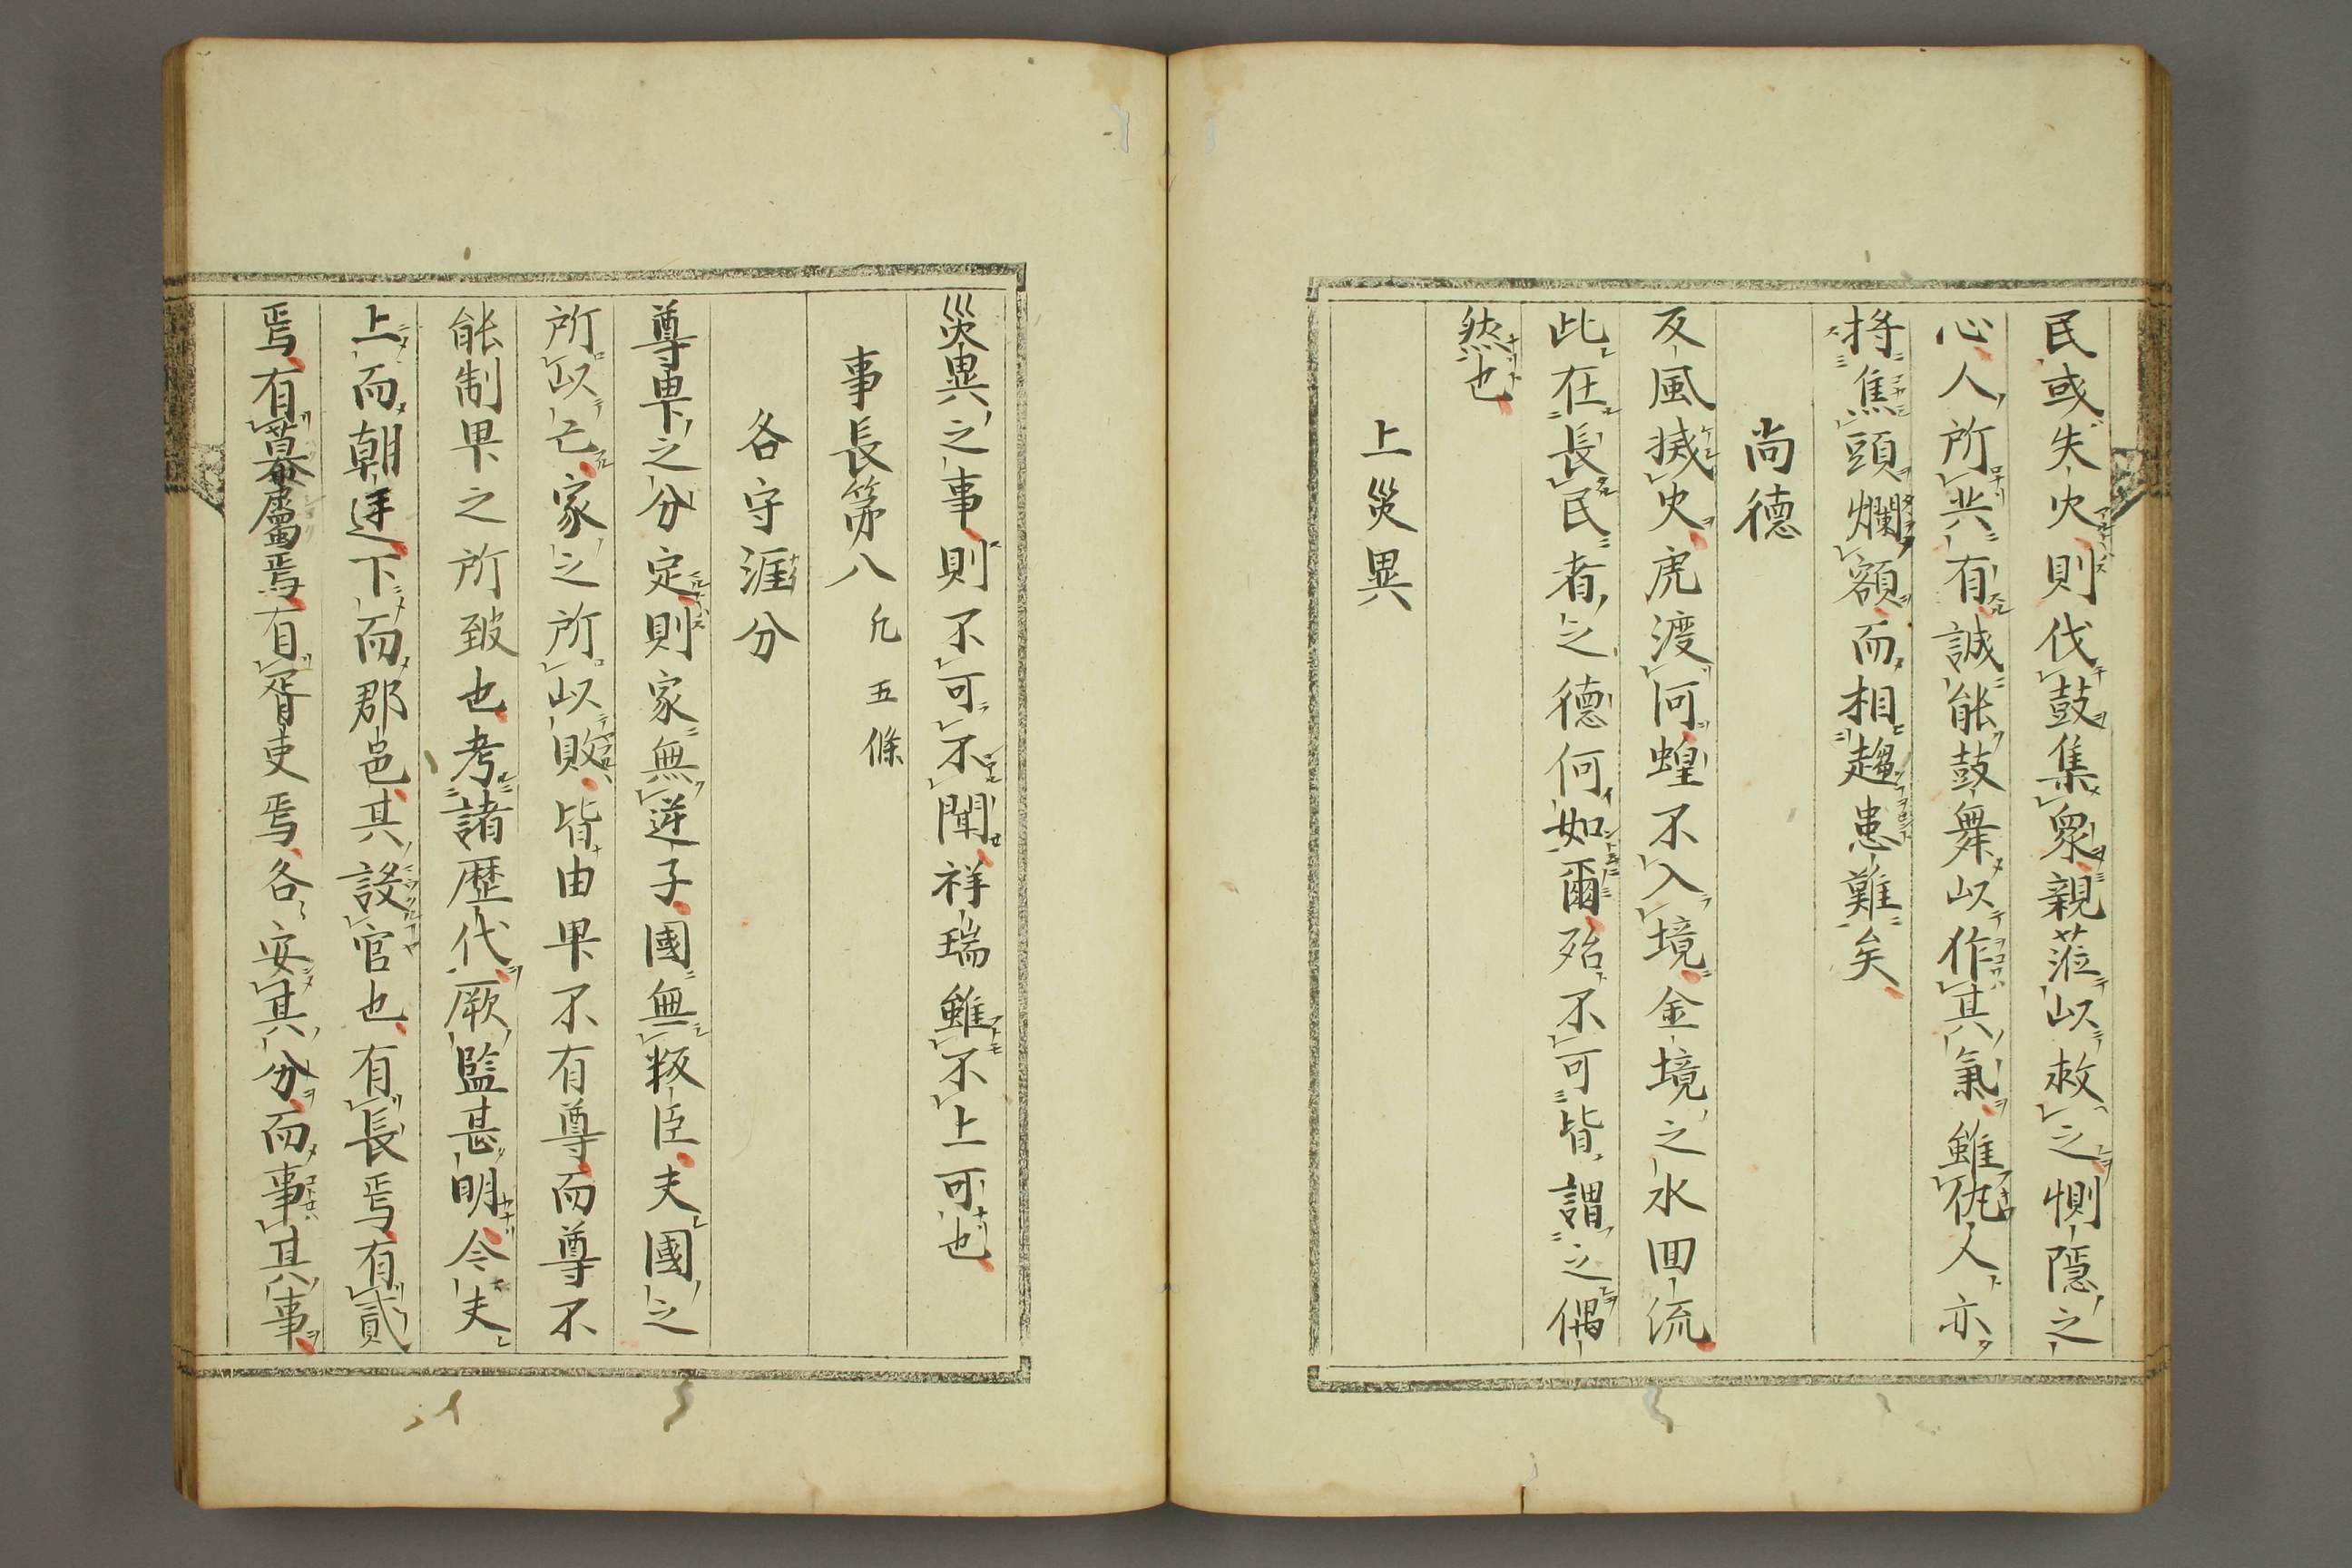 民或失火則伐鼓集衆親蒞以救之惻隱之
心人所共有誠能鼓舞以作其氣雖仇人亦
将焦頭爛額而相趨患難矣
尚德
反風滅火虎渡河蝗不入境金境之水回流
此在長民者之德何如爾殆不可皆謂之偶
然也
上災異
災異之事則不可不聞祥瑞雖不上可也
事長第八 凡五條
各守涯分
尊卑之分定則家無逆子國無叛臣夫國之
所以亡家之所以敗皆由卑不有尊而尊不
能制卑之所致也考諸歴代厥監甚明今夫
上而朝廷下而郡邑其設官也有長焉有貳
焉有幕屬焉有胥吏焉各安其分而事其事